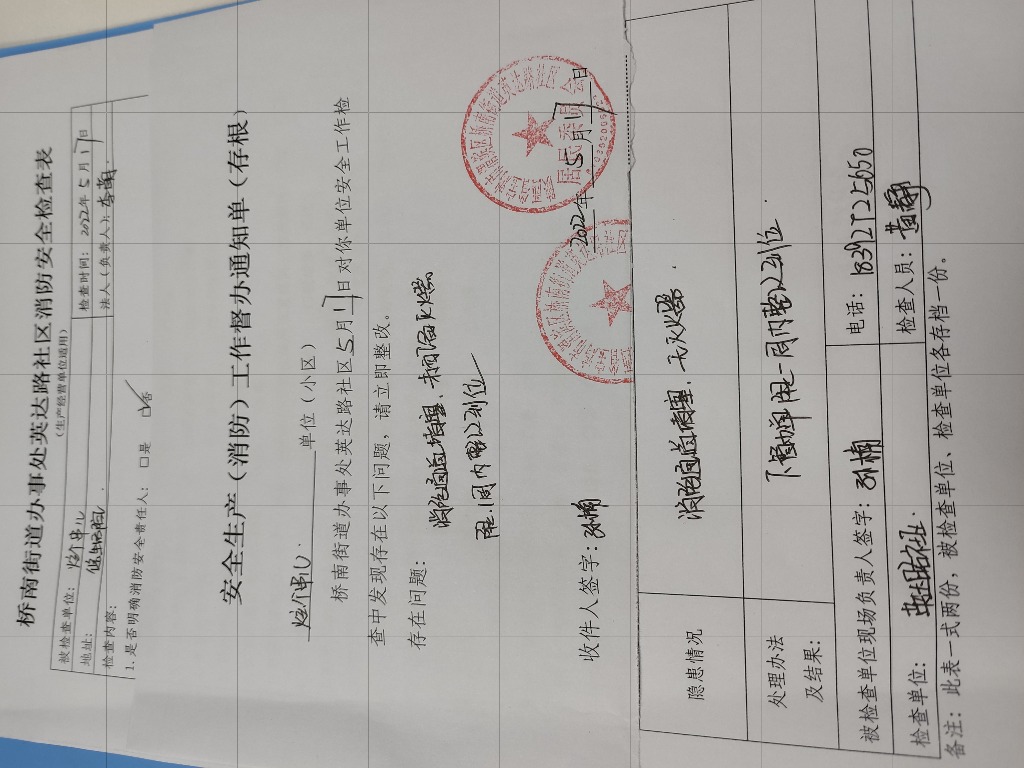 桥南街道办事处英达路社区消防安全检查表
（生产经营单位适用）
被检查单位：炸串儿
检查时间：2022年5月17日
地址：
法人（负责人）：
检查内容：
1. 是否明确消防安全责任人：□是 ☑否
安全生产（消防）工作督办通知单（存根）
炸串儿 单位（小区）
桥南街道办事处英达路社区5月17日对你单位安全工作检
查中发现存在以下问题，请立即整改。
存在问题：
消防通道堵塞、灭火器
限一周内
收件人签字：孙楠
2022年5月17日
居民委员会
隐患情况
消防通道堵塞、无灭火器.
处理办法
及结果：
限一周内
被检查单位现场负责人签字：孙楠
电话：
检查单位：英达路社区
检查人员：黄静
备注：此表一式两份，被检查单位、检查单位各存档一份。